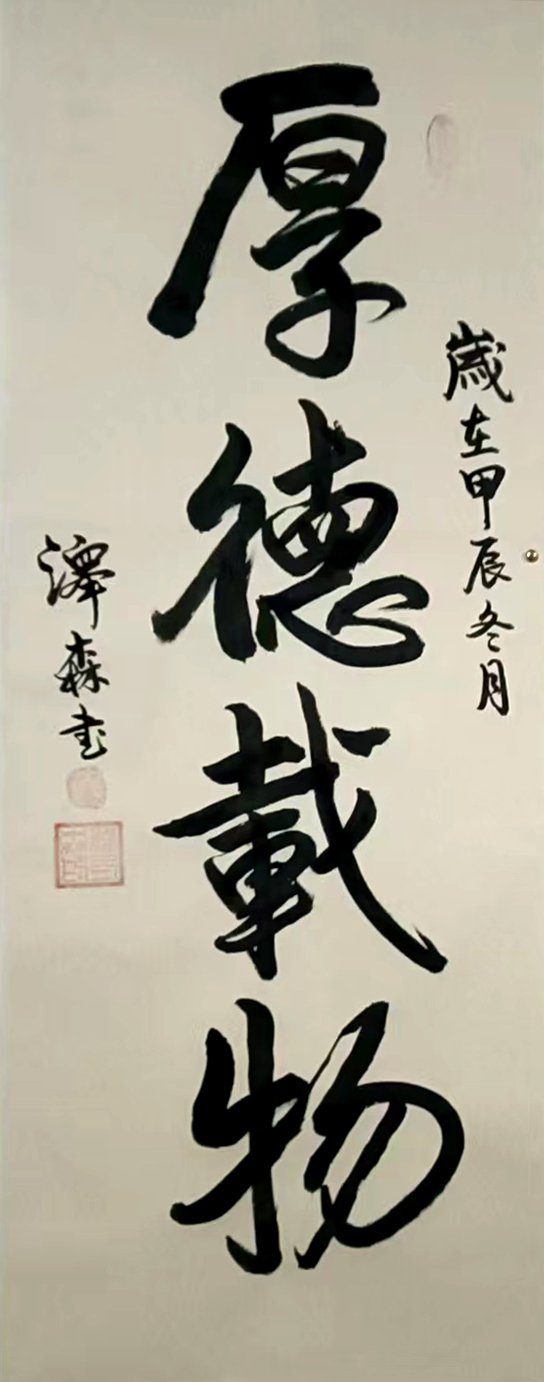 歲在甲辰冬月
厚德載物
澤森书